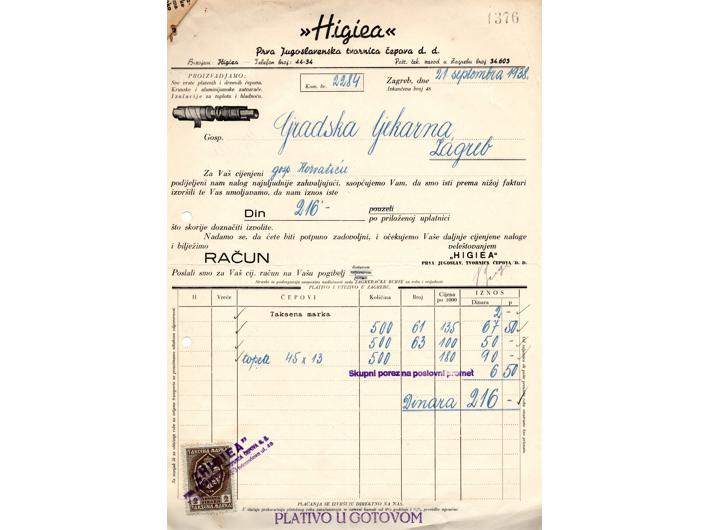 »Higiea«
1376
Prva Jugoslavenska tvornica čepova d. d.
Brzojav: Higiea — Telefon broj: 44-34
Pošt. ček. zavod u Zagrebu broj 34.603
PROIZVADJAMO:
Sve vrste plutenih i drvenih čepova.
Krunske i aluminijumske zatvarače.
Izolacije za toplotu i hladnoću.
Kom. br. 2284
Zagreb, dne 21 septembra 1938.
Ilekančeva broj 48
Gosp. Gradska Ljekarna
Zagreb
Za Vaš cijenjeni gosp Horvatiću
podijeljeni nam nalog najuljudnije zahvaljujući, saopćujemo Vam, da smo isti prema nižoj fakturi
izvršili te Vas umoljavamo, da nam iznos iste
Din 216·- pouzeli
po priloženoj uplatnici
što skorije doznačiti izvolite.
Nadamo se, da ćete biti potpuno zadovoljni, i očekujemo Vaše daljnje cijenjene naloge
i bilježimo veleštovanjem
RAČUN
„HIGIEA"
PRVA JUGOSLAV. TVORNICA ČEPOVA D. D.
Poslali smo za Vaš cij. račun na Vašu pogibelj
PLATIVO I UTUŽIVO U ZAGREBU.
H Vreće ČEPOVI Količina Broj Cijena po 1000 IZNOS
Dinara p
Taksena marka 2 -
500 61 135 67 50
500 63 100 50 -
topeti 45 x 13 500 180 90 -
Skupni porez na poslovni promet 6 50
Dinara 216 -
TAKSENA MARKA
„HIGIEA"
2 2
TAKSENA MARKA
PLAĆANJA SE IZVRŠUJU DIREKTNO NA NAS.
PLATIVO U GOTOVOM